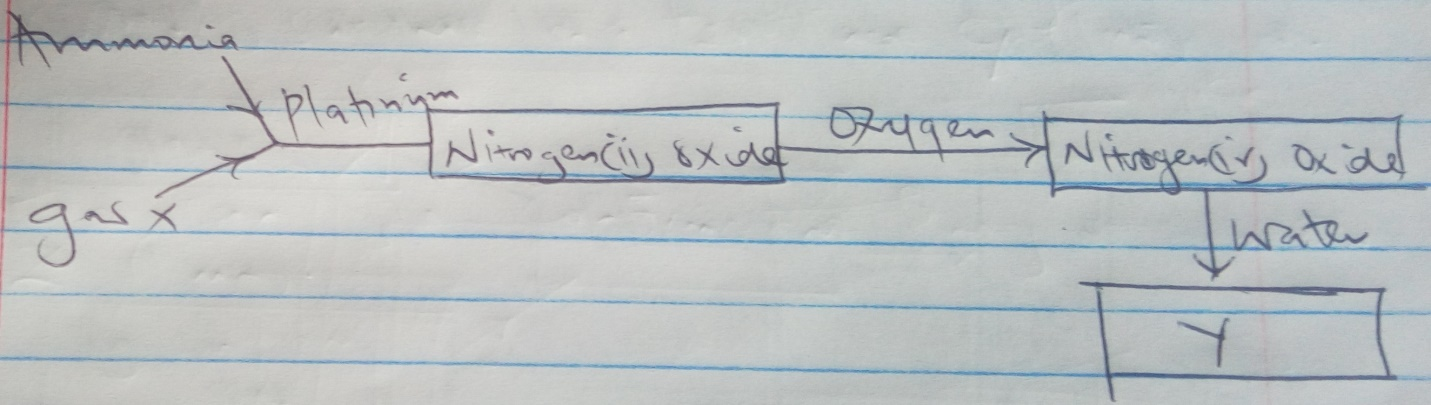 Ammonia
Platinium
Nitrogen(ii) oxide
Oxygen
Nitrogen(iv) Oxide
gas x
Water
Y